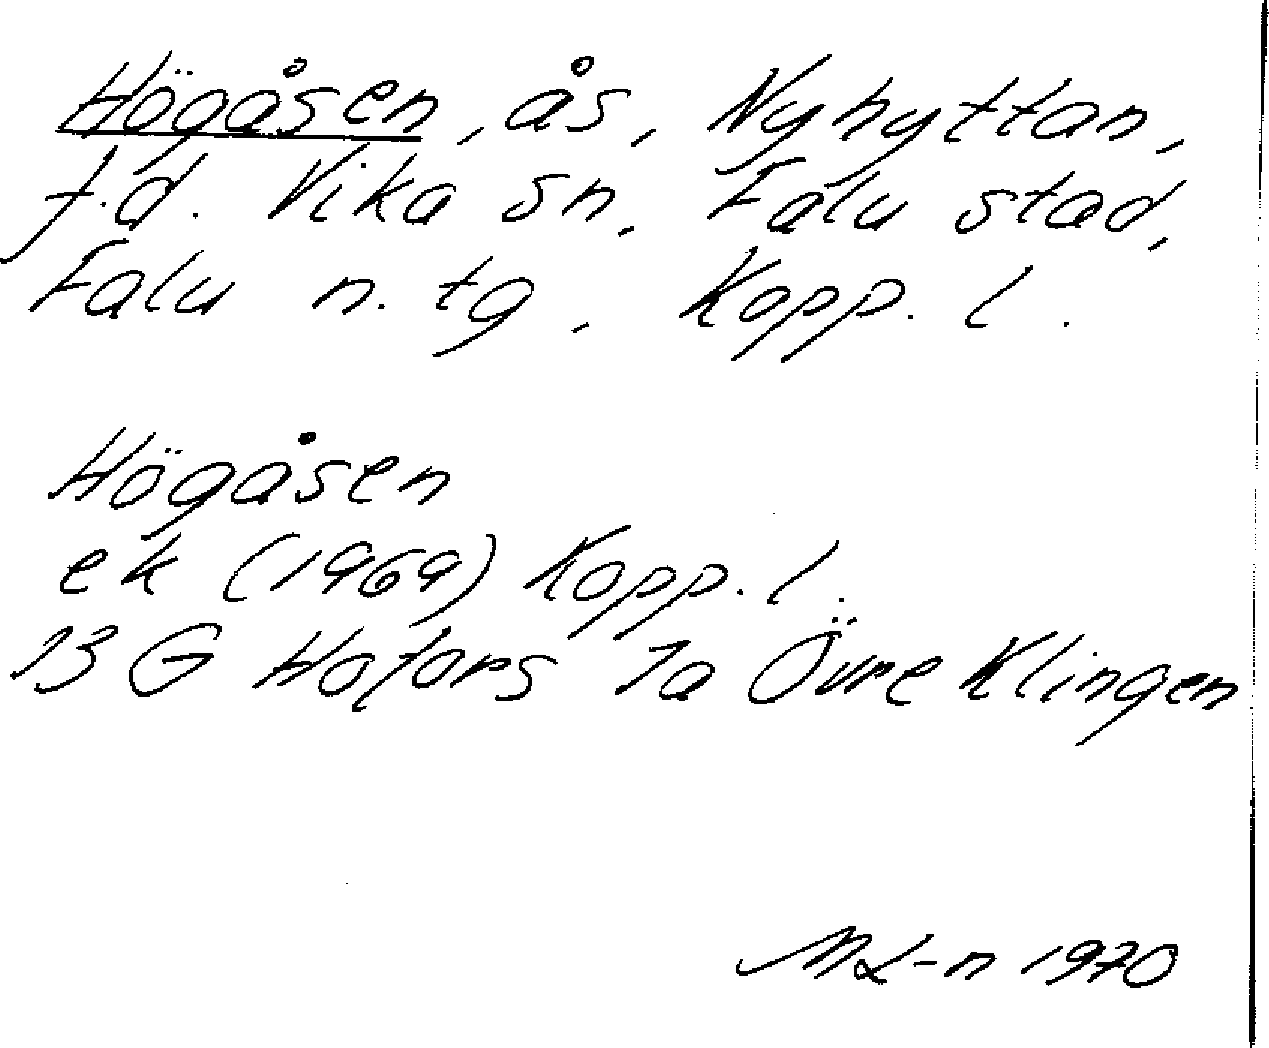 Högåsen, ås, Nyhyttan,
f.d. Vika sn, Falu stad,
Falu n. tg, Kopp. l.
Högåsen
ek (1969) Kopp. l.
13 G Hofors 7a Övre Klingen
ML-n 1970